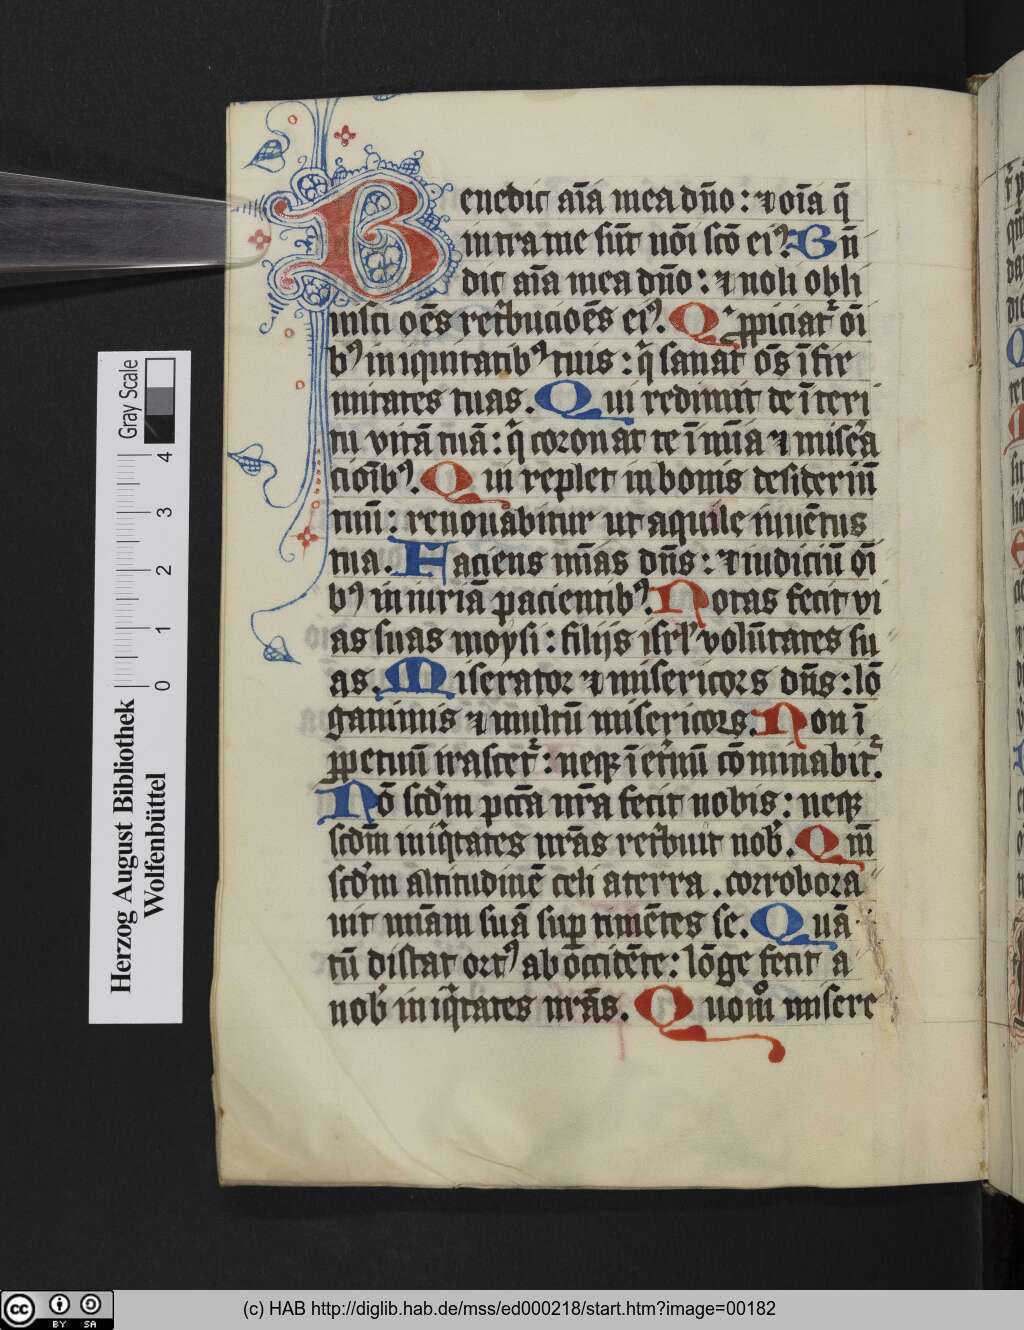 Benedic aīa mea dño: ⁊ oīa q̄
intra me sūt nōi scō ei⁹. Bn̄
dic aīa mea dño: ⁊ noli obli
uisci oēs ret̉buciōēs ei⁹. Q ꝓpiciat᷑ oī
b⁹ iniquitatib⁹ tuis: q̇ sanat oēs īfir
mitates tuas. Qui redimit de īteri
tu vitā tuā: q̇ coronat te ī mīa ⁊ mise̅a
cioīb⁹. Qui replet in bonis desideriū
tuū: renouabitur ut aquile iuuētus
tua. Faciens mīas dn̄s: ⁊ iudiciū oī
b⁹ iniuriā pacientib⁹. Notas fecit vi
as suas moysi: filijs isrl̓ volūtates su
as. Miserator ⁊ misericors dn̄s: lō
ganimis ⁊ multū misericors. Non ī
ꝑpetuū irascet᷑: neqꝫ ī et̉nū cōminabit᷑.
Nō scd̓m pctā nr̄a fecit nobis: neqꝫ
scd̓m iniq̇tates nr̄as ret̉buit nob̓. Qm̄
scd̓m altitudinē celi a terra. corrobora
uit mīam suā suꝑ timētes se. Quā
tū distat ort⁹ ab occidēte: lōge fecit a
nob̓ iniq̇tates nr̄as. Quom̊ misere
Herzog August Bibliothek
Wolfenbüttel
Gray Scale
0 1 2 3 4
(c) HAB http://diglib.hab.de/mss/ed000218/start.htm?image=00182
cc BY SA